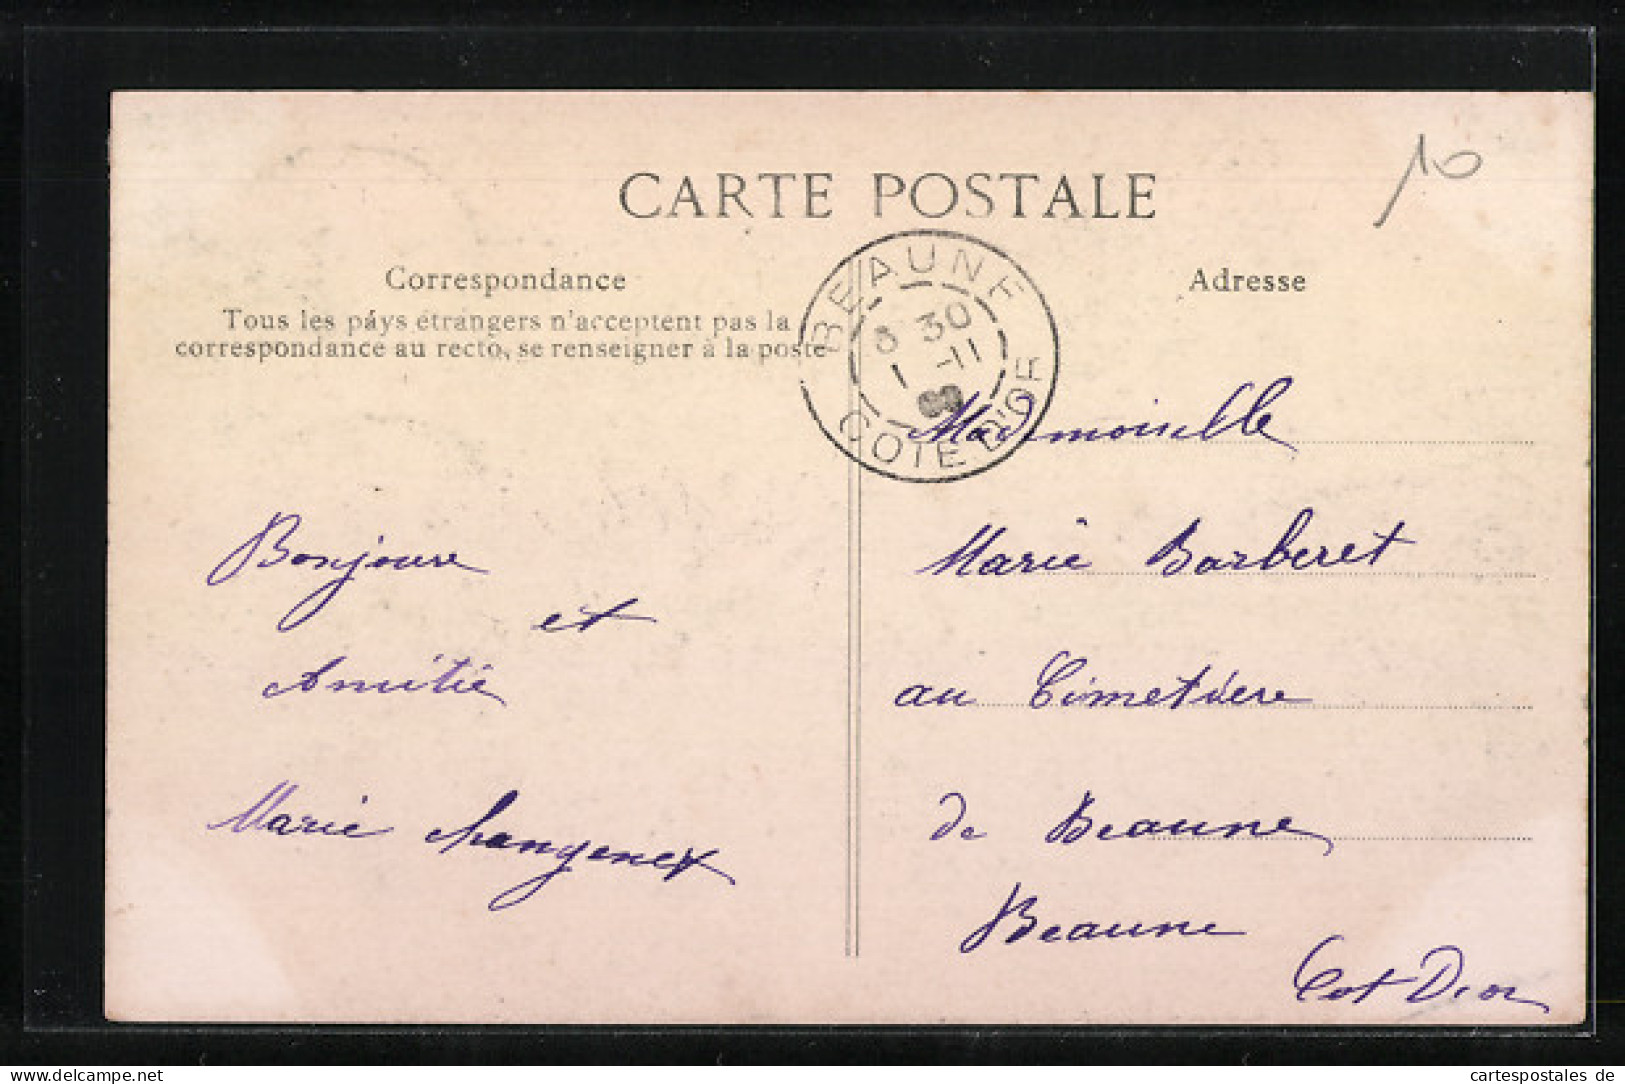 CARTE POSTALE
10
Correspondance
Tous les pays étrangers n'acceptent pas la
correspondance au recto, se renseigner à la poste
BEAUNE
30
1 -11
COTE D'OR
Adresse
Bonjoure
et
Amitié
Marie
Mademoiselle
Marie Barberet
au Cimetière
de Beaune
Beaune
Cot Dior
delcampe.net
cartespostales de